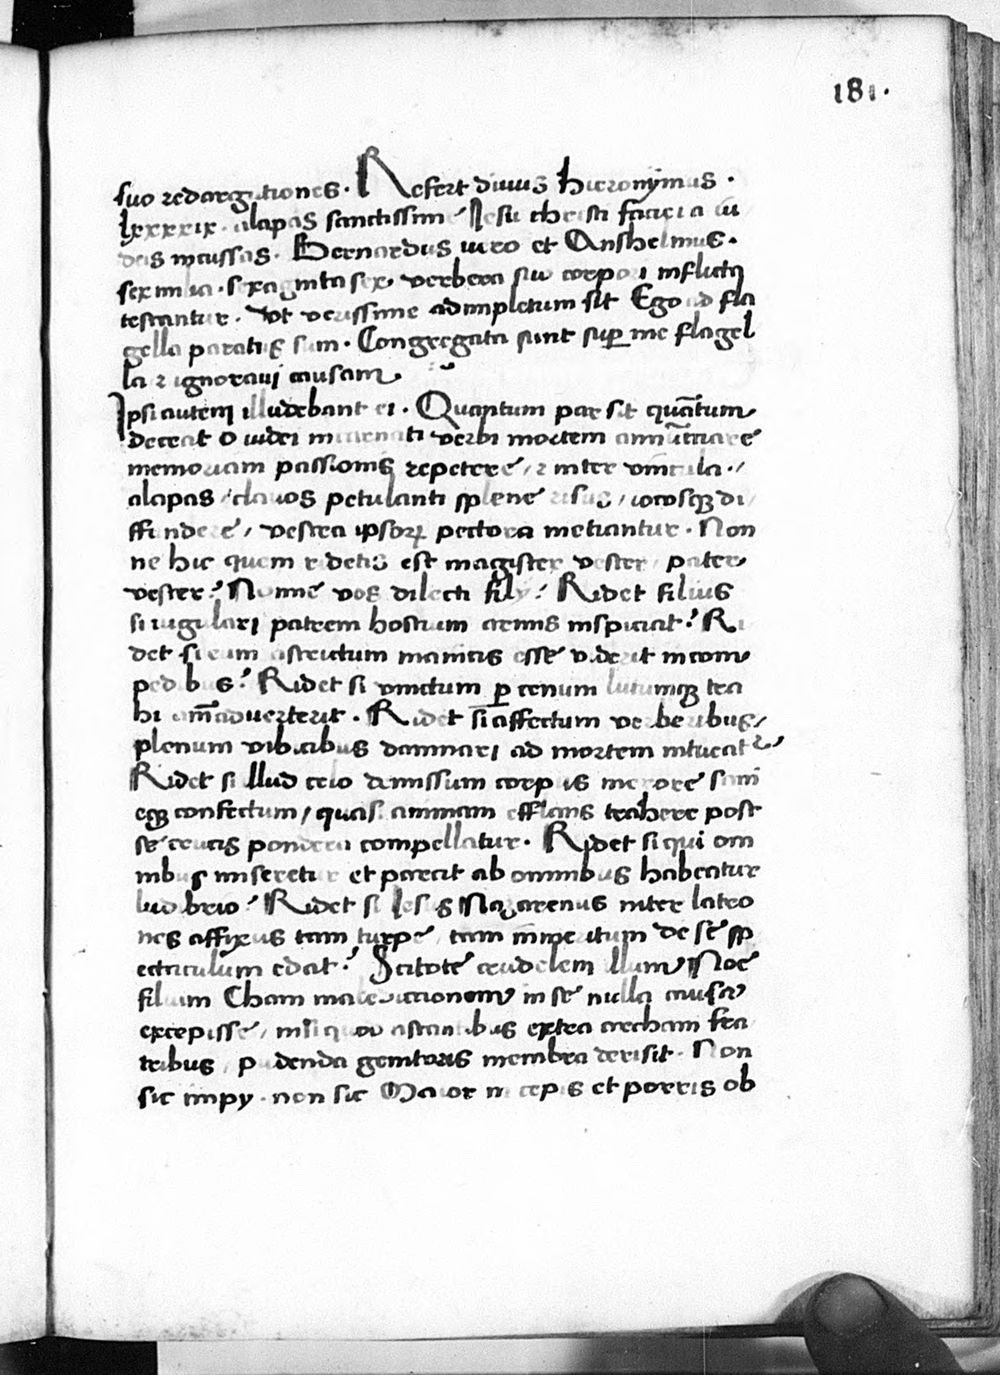 181.
suo redargutiones. Refert diuus hieronymus.
lxxxxix. alapas sanctissime Jesu christi faciei a iu
deis incussas. Bernardus uero et Anshelmus.
sex milia. sexaginta sex. verbera suo corpori inflicta
testantur. Vt verissime adimpletum sit Ego ad fla
gella paratus sum. Congregata sunt suꝑ me flagel
la ⁊ ignoraui causam.
Ipsi autem illudebant ei. Quantum par sit quātum
deceat o uidei incarnati verbi mortem annūtiare
memoriam passionis repetere / ⁊ inter vincula /
alapas / clauos petulanti splene risus / iocosqꝫ di
ffundere / vestra ipsoꝝ pectora metiantur. Non
ne hic quem ridetis est magister vester / pater
vester? Nonne vos dilecti filij? Ridet filius
si iugulari patrem hostium armis inspiciat? Ri
det si eum astrictum manicis esse viderit in com
pedibus? Ridet si vinctum ꝑ cenum lutumqꝫ tra
hi aīaduerterit. Ridet si affectum verberibus /
plenum vibicibus damnari ad mortem intueatr?
Ridet si illud celo demissum corpus merore sani
eqꝫ confectum / quasi animam efflans trahere post
se crucis pondera compellatur. Ridet si qui om
nibus miseretur et parcit ab omnibus habeatur
ludibrio? Ridet si Jesus Nazarenus inter latro
nes affixus tam turpe / tam immeritum de se sp
ectaculum edat? Scitote crudelem illum Noe
filium Cham maledictionem in se nulla causa
excepisse / nisi quod astantibus extra archam fra
tribus / pudenda genitoris membra derisit. Non
sic impij. non sic Maior in cepis et porris ob